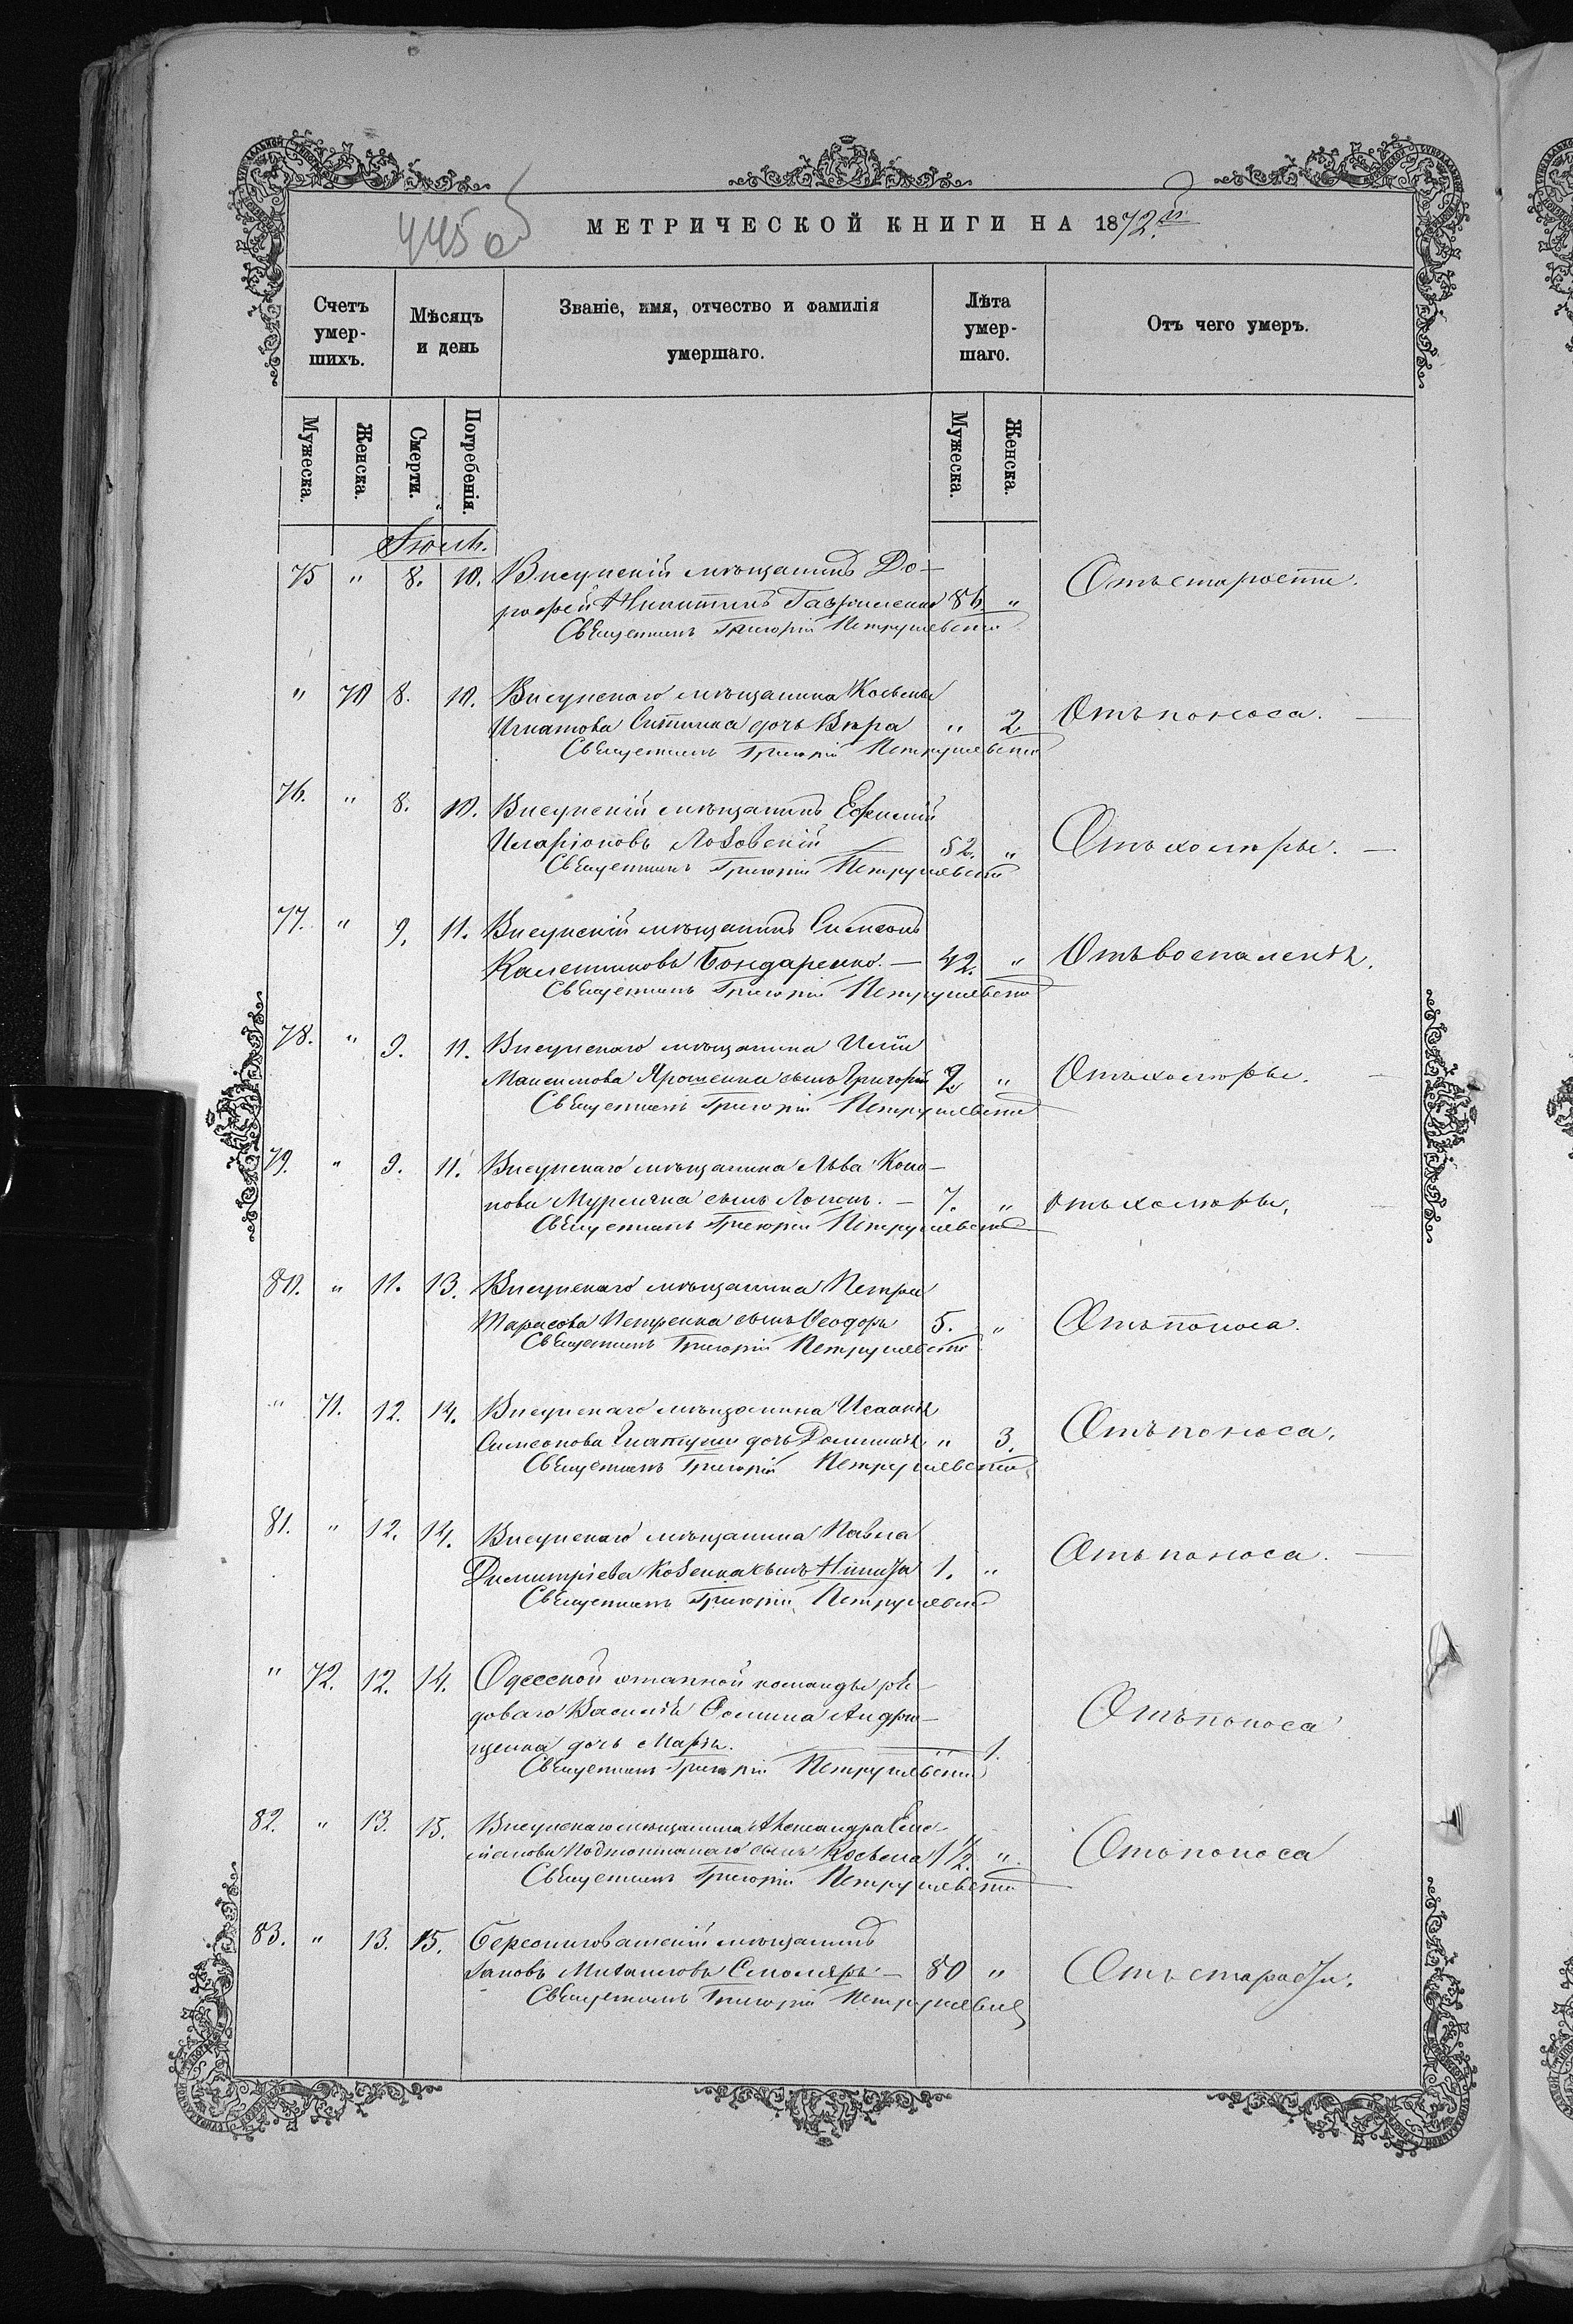 445 об
МЕТРИЧЕСКОЙ КНИГИ НА 1872й
Счетъ умер-шихъ.
Мѣсяцъ и день
Званіе, имя, отчество и фамилія умершаго.
Лѣта умер-шаго.
Отъ чего умеръ.
Мужеска.
Женска.
Смерти.
Погребенія.
Мужеска.
Женска.
Іюль.
75 " 8. 10. Висунскій мѣщанинъ До-
рофей Никитинъ Гавриленко 86 " Отъ старости.
Священникъ Григорій Петрушевскій
" 70 8. 10. Висунскаго мѣщанина Косьмы
Игнатова Ситника дочь Вѣра " 2 Отъ поноса. —
Священникъ Григорій Петрушевскій
76. " 8. 10. Висунскій мѣщанинъ Ефимій
Иларіоновъ Лозовскій 52. " Отъ холеры. —
Священникъ Григорій Петрушевскій
77. " 9. 11. Висунскій мѣщанинъ Симеонъ
Бондаренко. — 42. " Отъ воспаленія.
Священникъ Григорій Петрушевскій
78. " 9. 11. Висунскаго мѣщанина Иліи
Максимова Ярошенка сынъ Григорій 2 " Отъ холеры. —
Священникъ Григорій Петрушевскій
79. " 9. 11. Висунскаго мѣщанина Льва Коно-
нова сынъ — 7. " Отъ холеры.
Священникъ Григорій Петрушевскій
80. " 11. 13. Висунскаго мѣщанина Петра
Тарасова Петренка сынъ Ѳеодоръ 5. " Отъ поноса.
Священникъ Григорій Петрушевскій
" 71. 12. 14. Висунскаго мѣщанина Исаакія
Симеонова дочь Домникія " 3. Отъ поноса.
Священникъ Григорій Петрушевскій
81. " 12. 14. Висунскаго мѣщанина Павла
Димитріева Козенка сынъ Никита 1. " Отъ поноса. —
Священникъ Григорій Петрушевскій
" 72. 12. 14. Одесской этапной команды ря-
доваго Василія Ѳомина Андрю-
щенка дочь Марія. 1. Отъ поноса
Священникъ Григорій Петрушевскій
82. " 13. 15. Висунскаго мѣщанина Александра
сынъ Косьма 1 1/2. " Отъ поноса
Священникъ Григорій Петрушевскій
83. " 13. 15. Березниговатскій мѣщанинъ
Іаковъ Михаиловъ Столяръ — 80 " Отъ старости.
Священникъ Григорій Петрушевскій